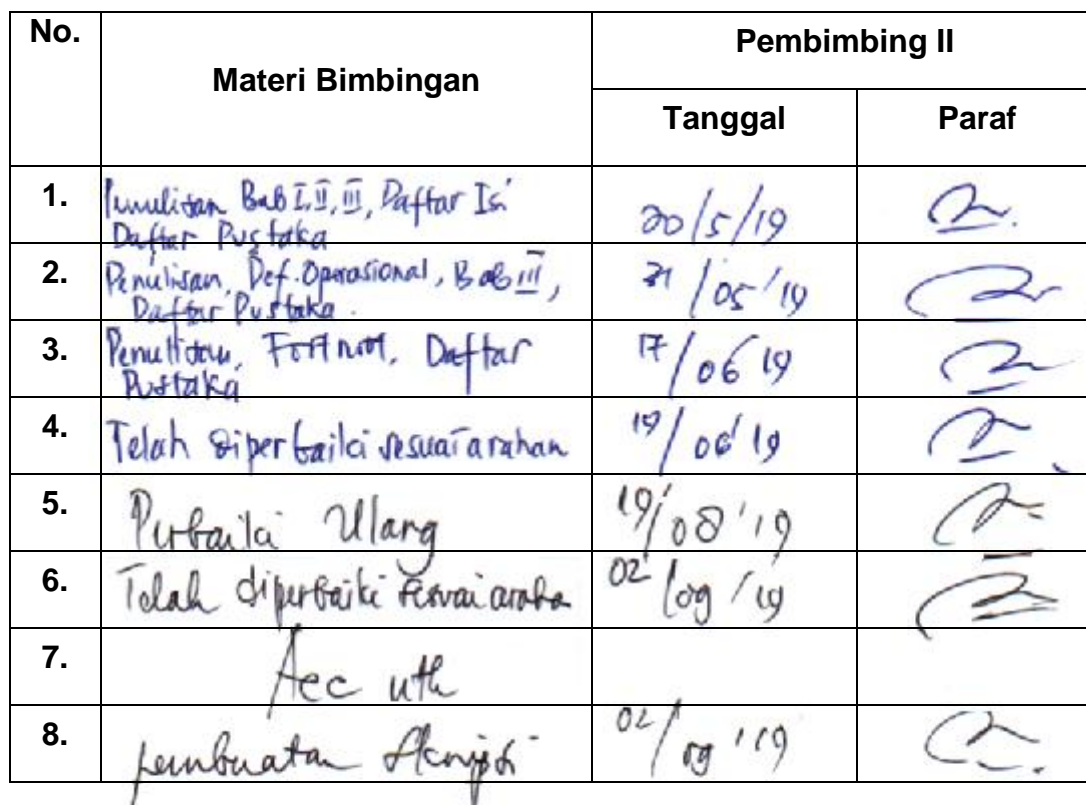 No. Materi Bimbingan Pembimbing II
Tanggal Paraf
1. Penulisan Bab I, II, III, Daftar Isi 20/5/19
Daftar Pustaka
2. Penulisan, Def. Operasional, Bab III, 31/05/19
Daftar Pustaka.
3. Penulisan, Footnoot, Daftar 17/06 19
Pustaka
4. Telah diperbaiki sesuai arahan 19/06'19
5. Perbaiki Ulang 19/08'19
6. Telah diperbaiki sesuai araha 02/09/19
7. Acc utk
8. pembuatan Skripsi 02/09'19